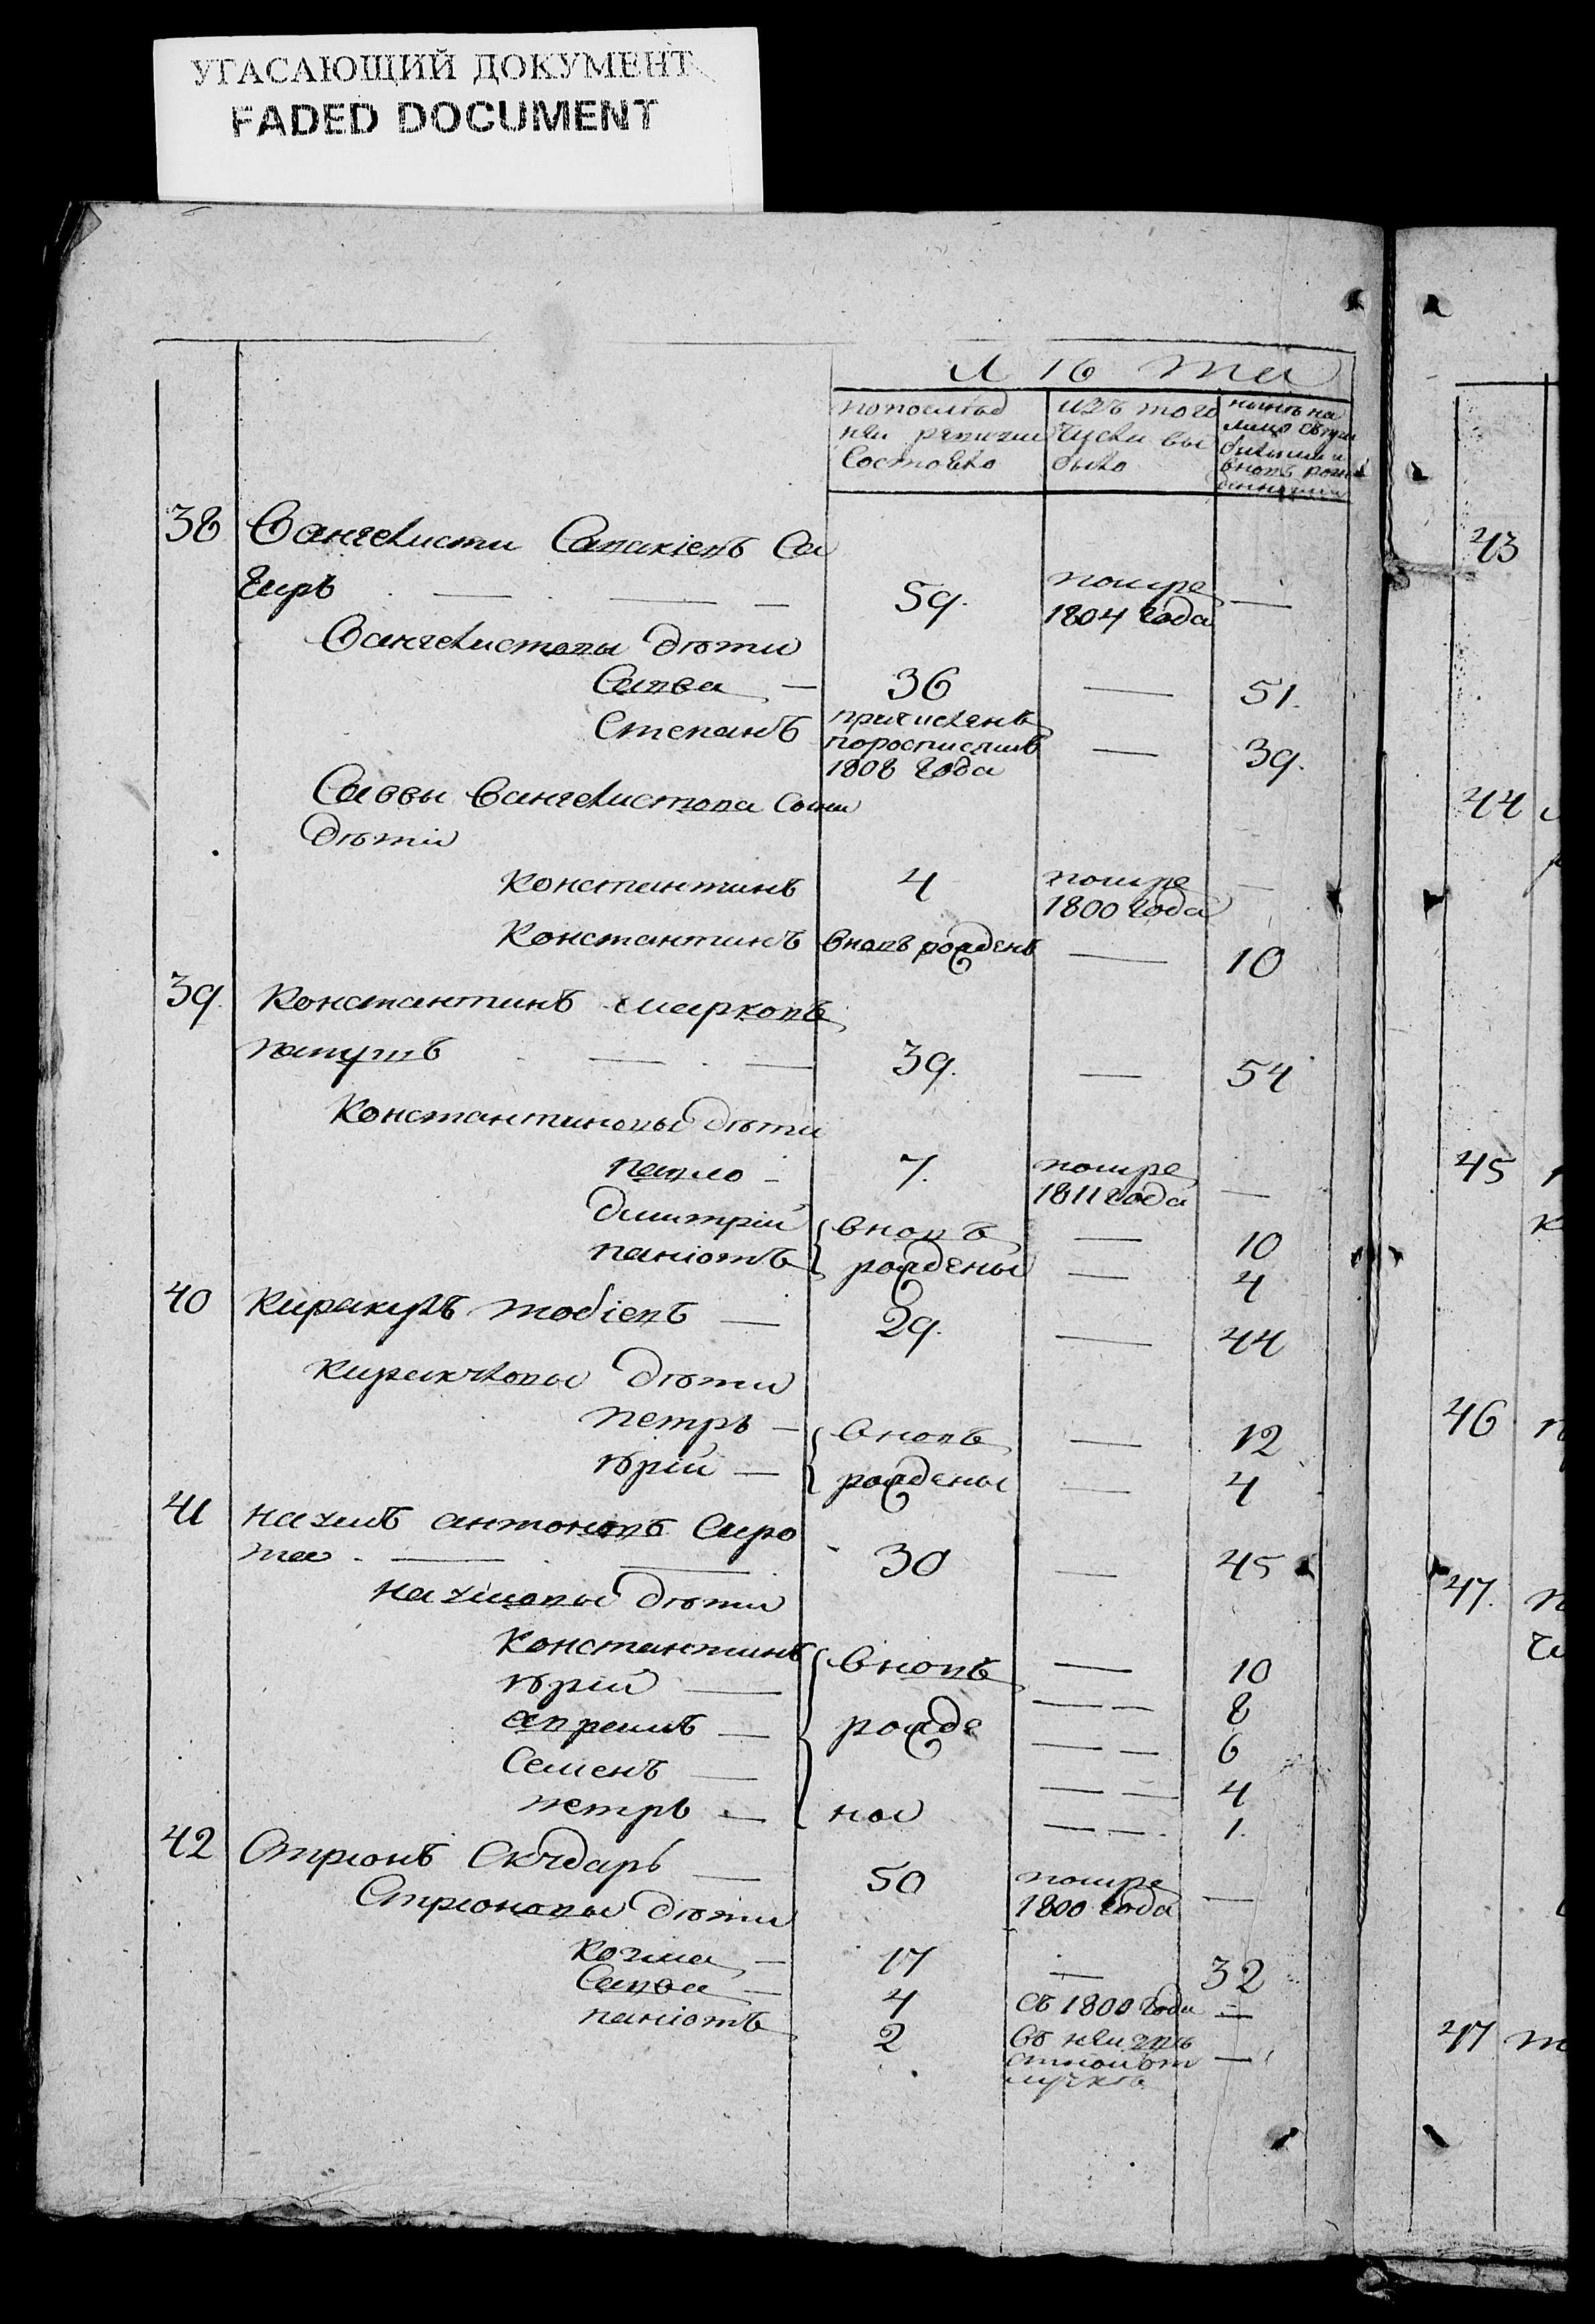 УГАСАЮЩИЙ ДОКУМЕНТ
FADED DOCUMENT
Л ѣ та
попослѣд ней ревизии состояло
изъ того числа вы было
нынѣ на лицо
38 Вангелисти Савакіевъ Са
гиръ — 59. помре 1804 года —
Вангелистовы дѣти
Савва — 36 — 51.
Степанъ причисленъ поросписямъ 1808 года — 39.
Саввы Вангелистова сына
дѣти
Константинъ 4 помре 1800 года —
Константинъ вновь рожденъ — 10
39. Константинъ Марковъ
папушъ — 39. — 54
Константиновы дѣти
павло - 7. помре 1811 года —
дмитрій вновь — 10
паніотъ рождены — 4
40 Киракулъ тодіевъ — 29. — 44
Киракуловы дѣти
петръ — вновь — 12
юрій — рождены — 4
41 Назимъ антоновъ Сиро
та — 30 — 45
Назимовы дѣти
Константинъ вновь — 10
юрій — — — 8
апремъ — рожде — — 6
Семенъ — — — 4
петръ — ны — — 1.
42 Стрионъ Скударь — 50 помре 1800 года —
Стрионовы дѣти
Козма — 17 — 32
Савва — 4 съ 1800 года —
паніотъ 2 въ неизвѣстной отлучкѣ —
43
44
45
46
47
47